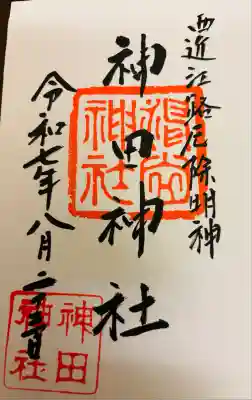 西近江路厄除明神
神田神社
令和七年八月
神社
神田
神社